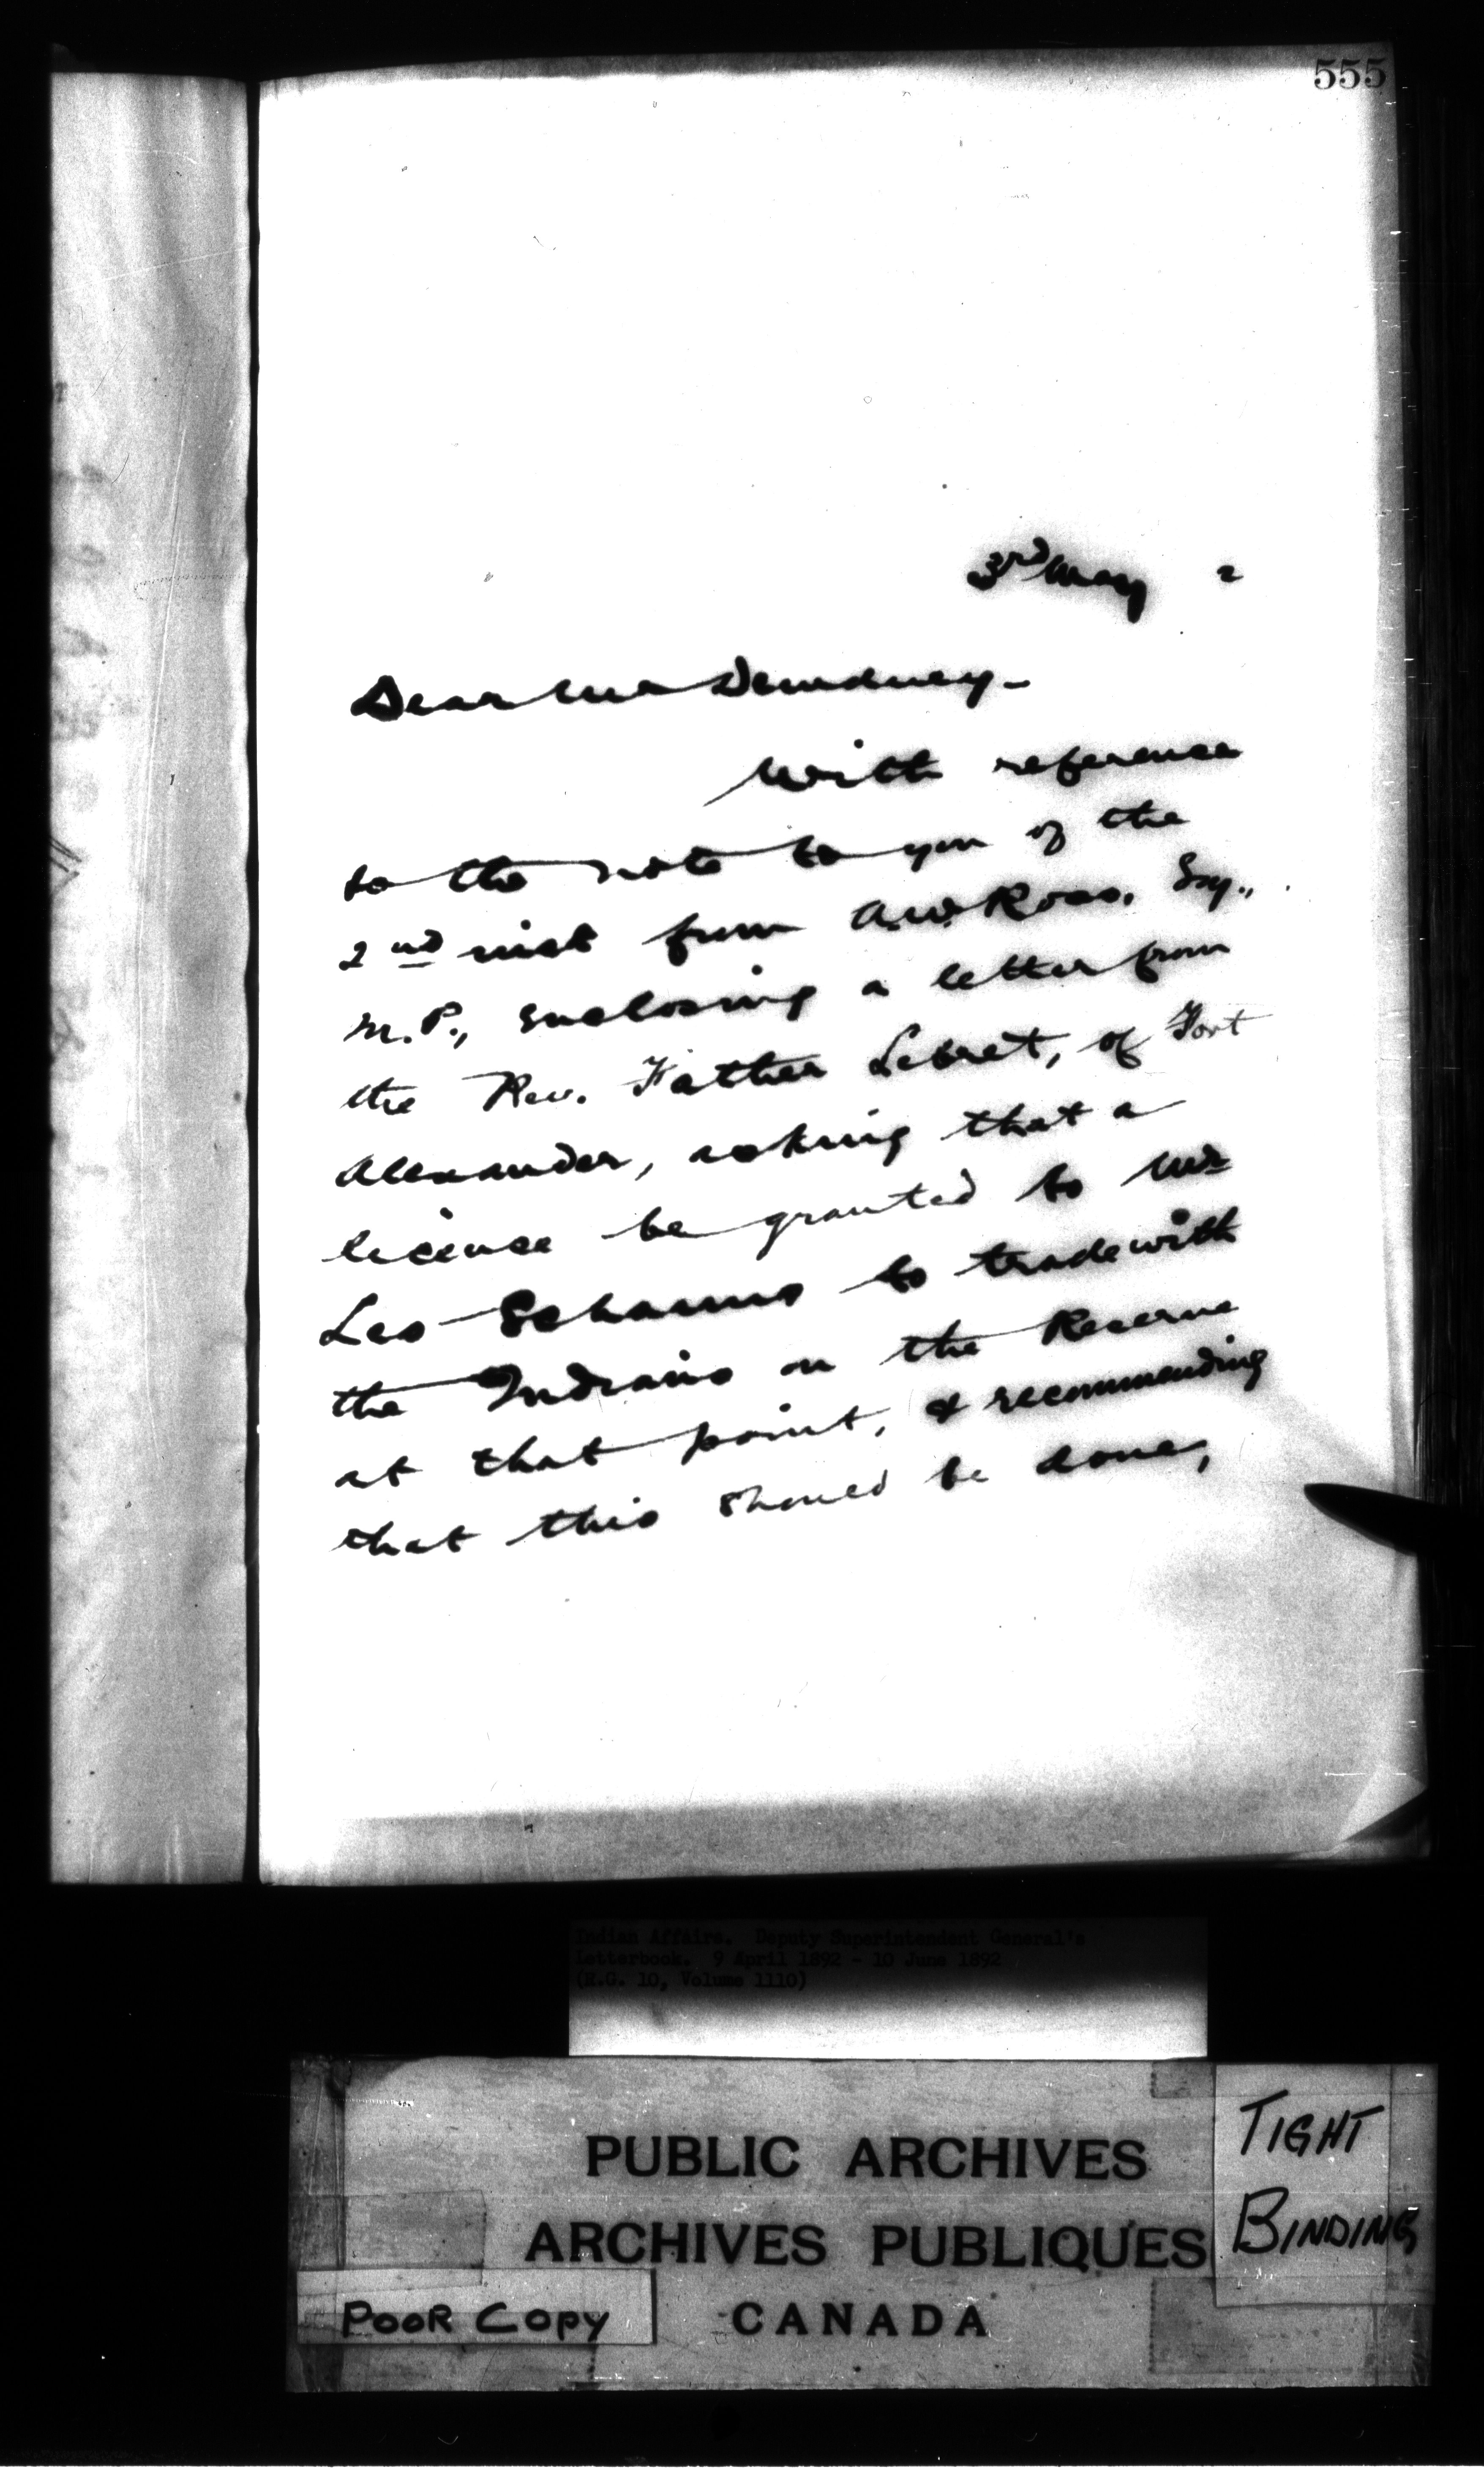 555
3rd May 2
Dear Mr Dewdney-
With reference
to the note to you of the
2nd inst from A.W. Ross, Esq.,
M.P., enclosing a letter from
the Rev. Father Lebret, of Fort
Alexander, asking that a
license be granted to Mr
Leo to trade with
the Indians on the Reserve
at that point, & recommending
that this should be done,
Indian Affairs. Deputy Superintendent General's
Letterbook. 9 April 1892 - 10 June 1892
(R.G. 10, Volume 1110)
PUBLIC ARCHIVES
ARCHIVES PUBLIQUES
CANADA
TIGHT
BINDING
POOR COPY